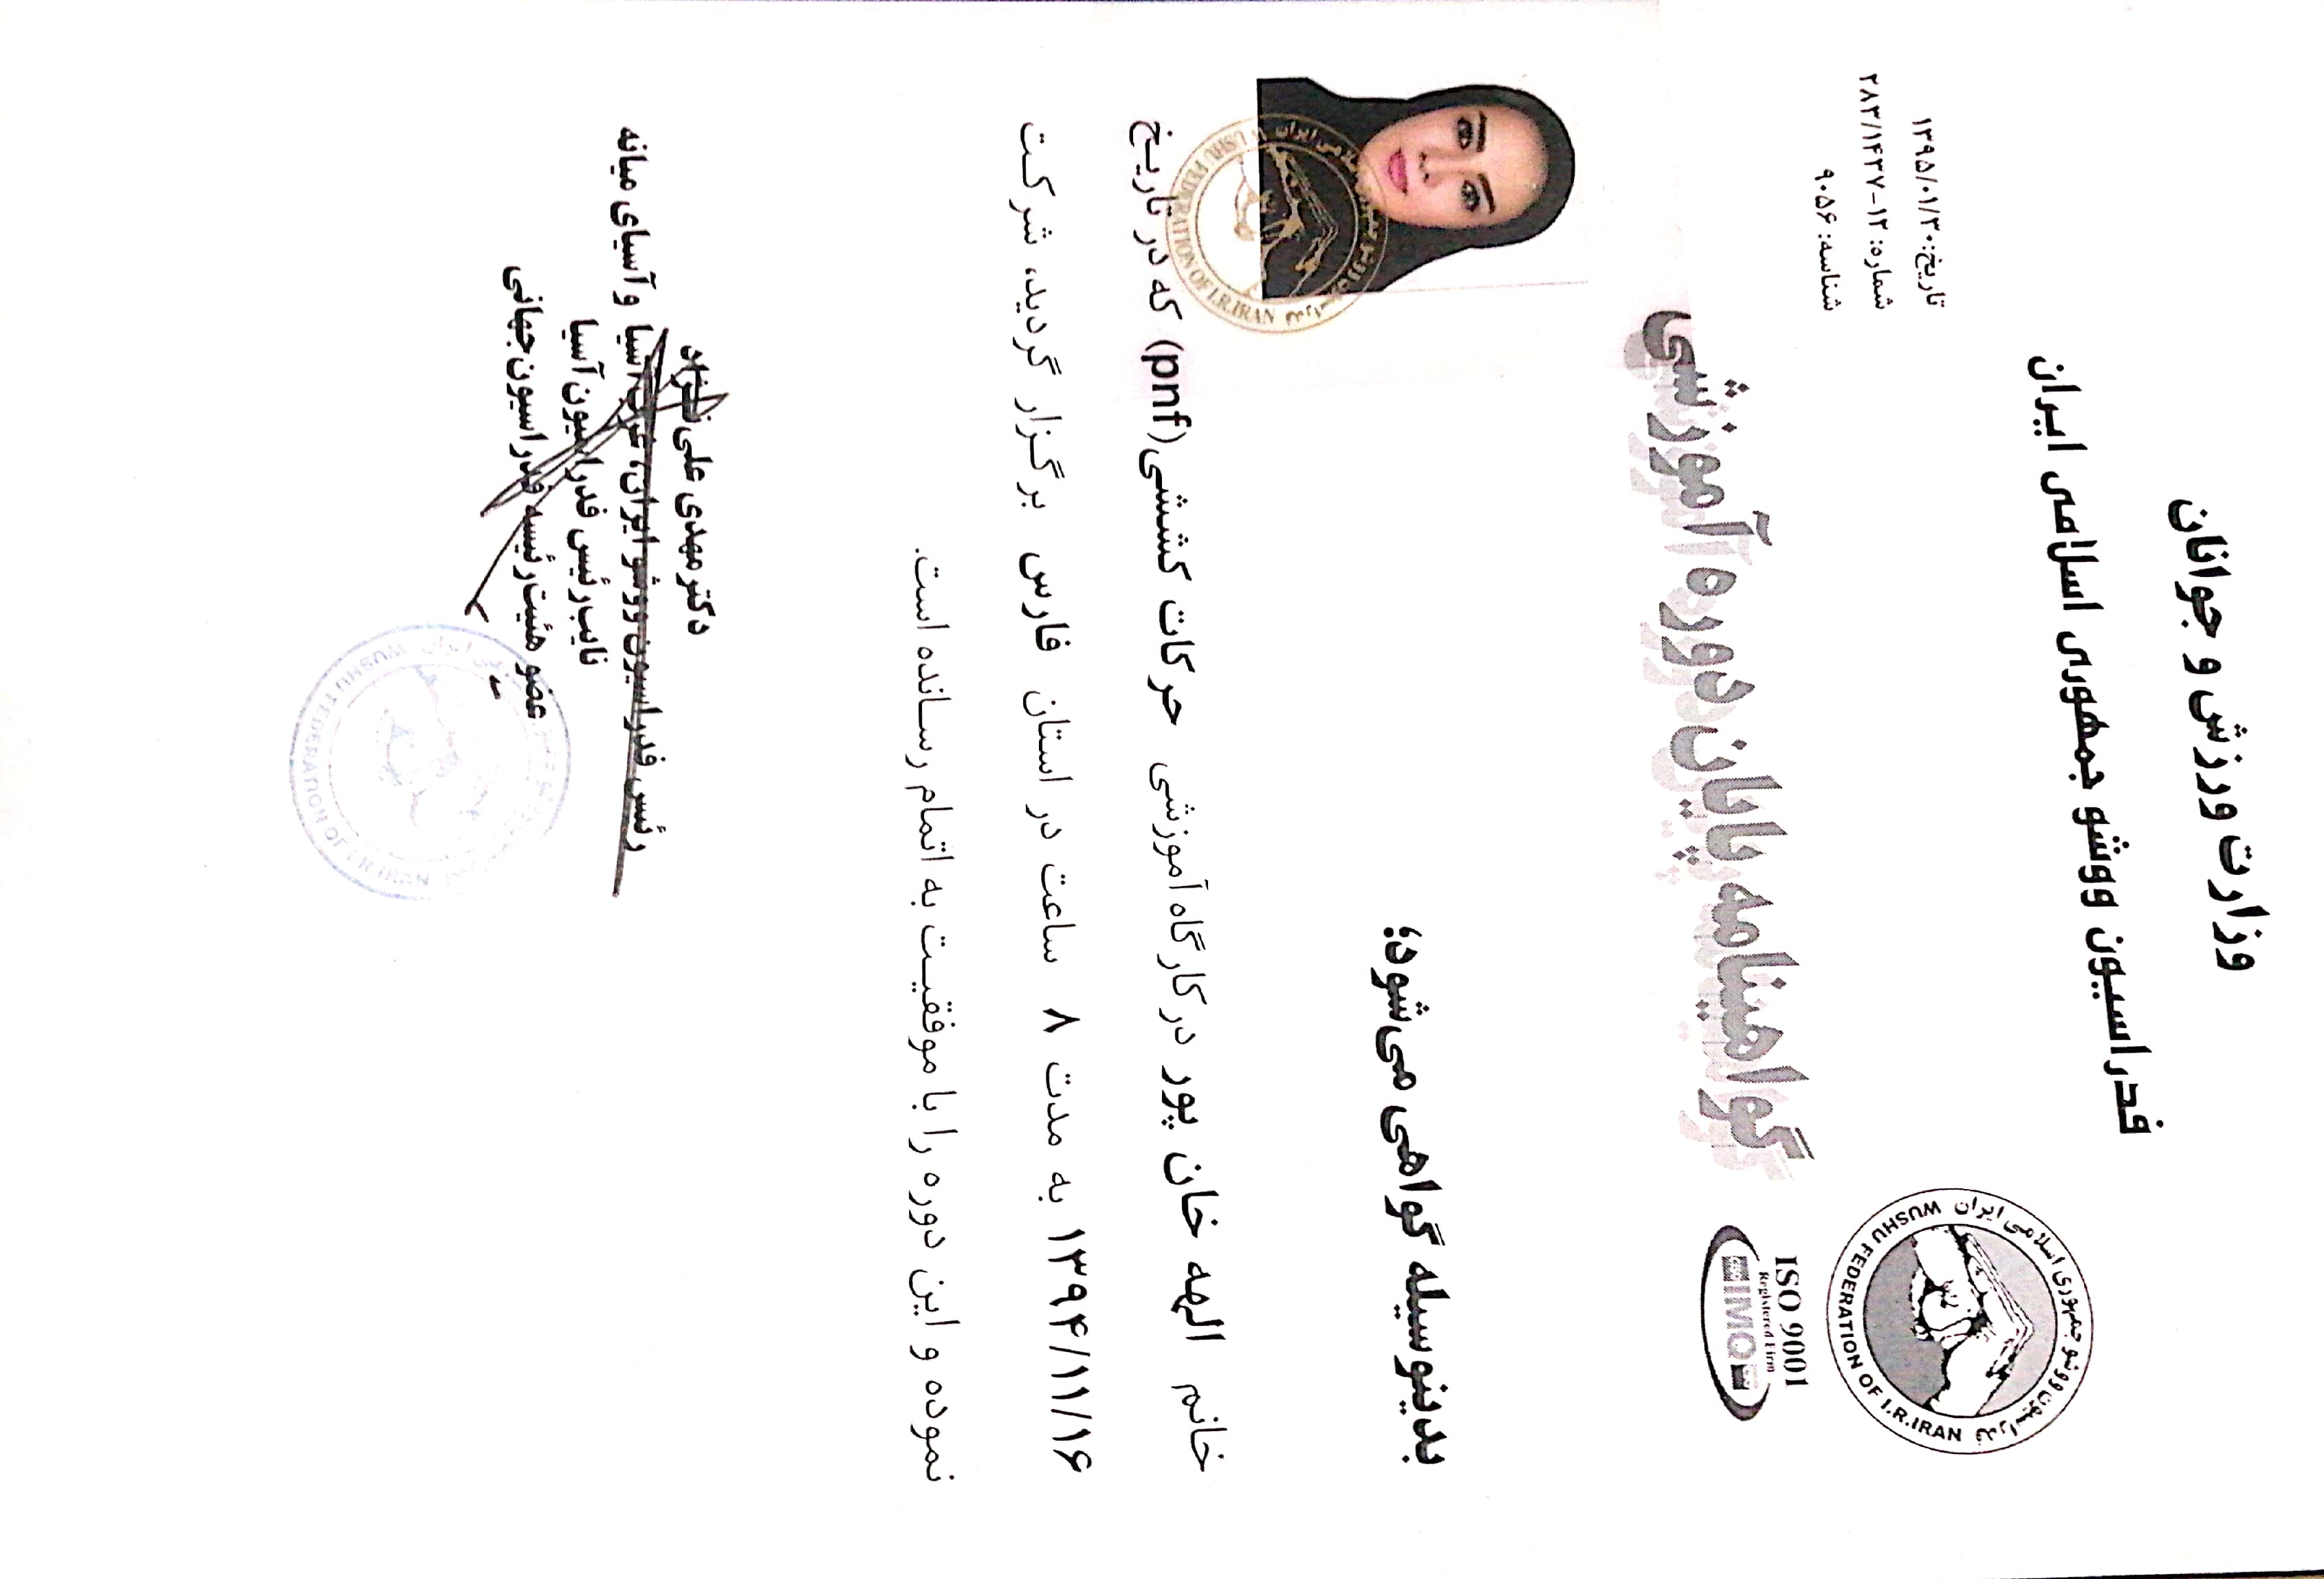 وزارت ورزش و جوانان
فدراسیون ووشو جمهوری اسلامی ایران
تاریخ: ۱۳۹۵/۰۱/۳۰
شماره: ۱۲-۲۸۳/۱۴۳۷
شناسه: ۹۰۵۶
فدراسیون ووشو جمهوری اسلامی ایران
WUSHU FEDERATION OF I.R.IRAN
ISO 9001
Registered Firm
IMQ
گواهینامه پایان دوره آموزشی
بدینوسیله گواهی می‌شود؛
خانم الهه خان پور در کارگاه آموزشی حرکات کششی (pnf) که در تاریخ
۱۳۹۴/۱۱/۱۶ به مدت ۸ ساعت در استان فارس برگزار گردید، شرکت
نموده و این دوره را با موفقیت به اتمام رسانده است.
WUSHU FEDERATION OF I.R.IRAN
دکتر مهدی علی نژاد
رئس فدراسیون ووشو ایران، غرب آسیا و آسیای میانه
نایب رئیس فدراسیون آسیا
عضو هئیت رئیسه فدراسیون جهانی
WUSHU FEDERATION OF I.R.IRAN